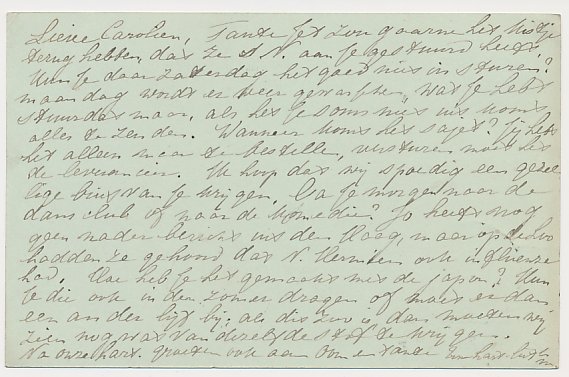 Lieve Carolien, Tante Jet zou gaarne het kistje
terug hebben, dat ze S N. aan je gestuurd heeft.
Kun je daar Zaterdag het goed niet in sturen?
maandag wordt er weer gewasschen, wat je hebt
stuur dat maar, als het je soms niet uit komt
alles te zenden. Wanneer komt het sajet? Jij hebt
het alleen maar te bestellen, versturen moet het
de leverancier. Ik hoop dat wij spoedig een gezel
lige brief van je krijgen. Ga je morgen naar de
dansclub of naar de Komedie? Jo heeft nog
geen nader bericht uit den Haag, maar op
hadden ze gehoord dat N. ook influenza
had. Hoe heb je het gemaakt met de japon? Kun
je die ook in den zomer dragen of moet er dan
een ander lijf bij, als dit zoo is dan moeten wij
zien nog wat van dezelfde stof te krijgen.
Na onze hart. groeten ook aan Oom en tante